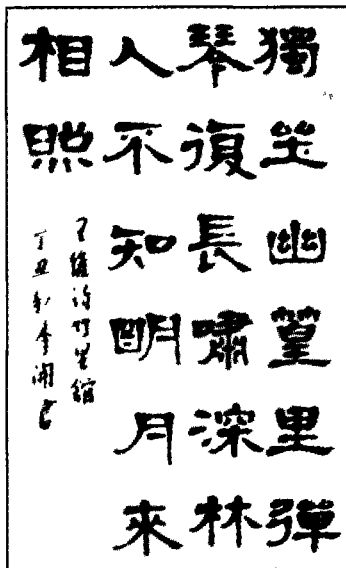 獨坐幽篁里彈
琴復長嘯深林
人不知明月來
相照
王維詩竹里館
丁丑秋李書